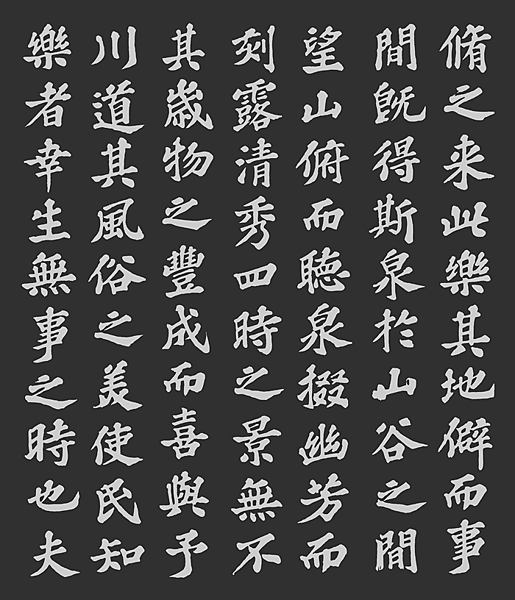 脩之来此樂其地僻而事
間既得斯泉於山谷之閒
望山俯而聴泉掇幽芳而
刻露清秀四時之景無不
其歳物之豐成而喜與予
川道其風俗之美使民知
樂者幸生無事之時也夫